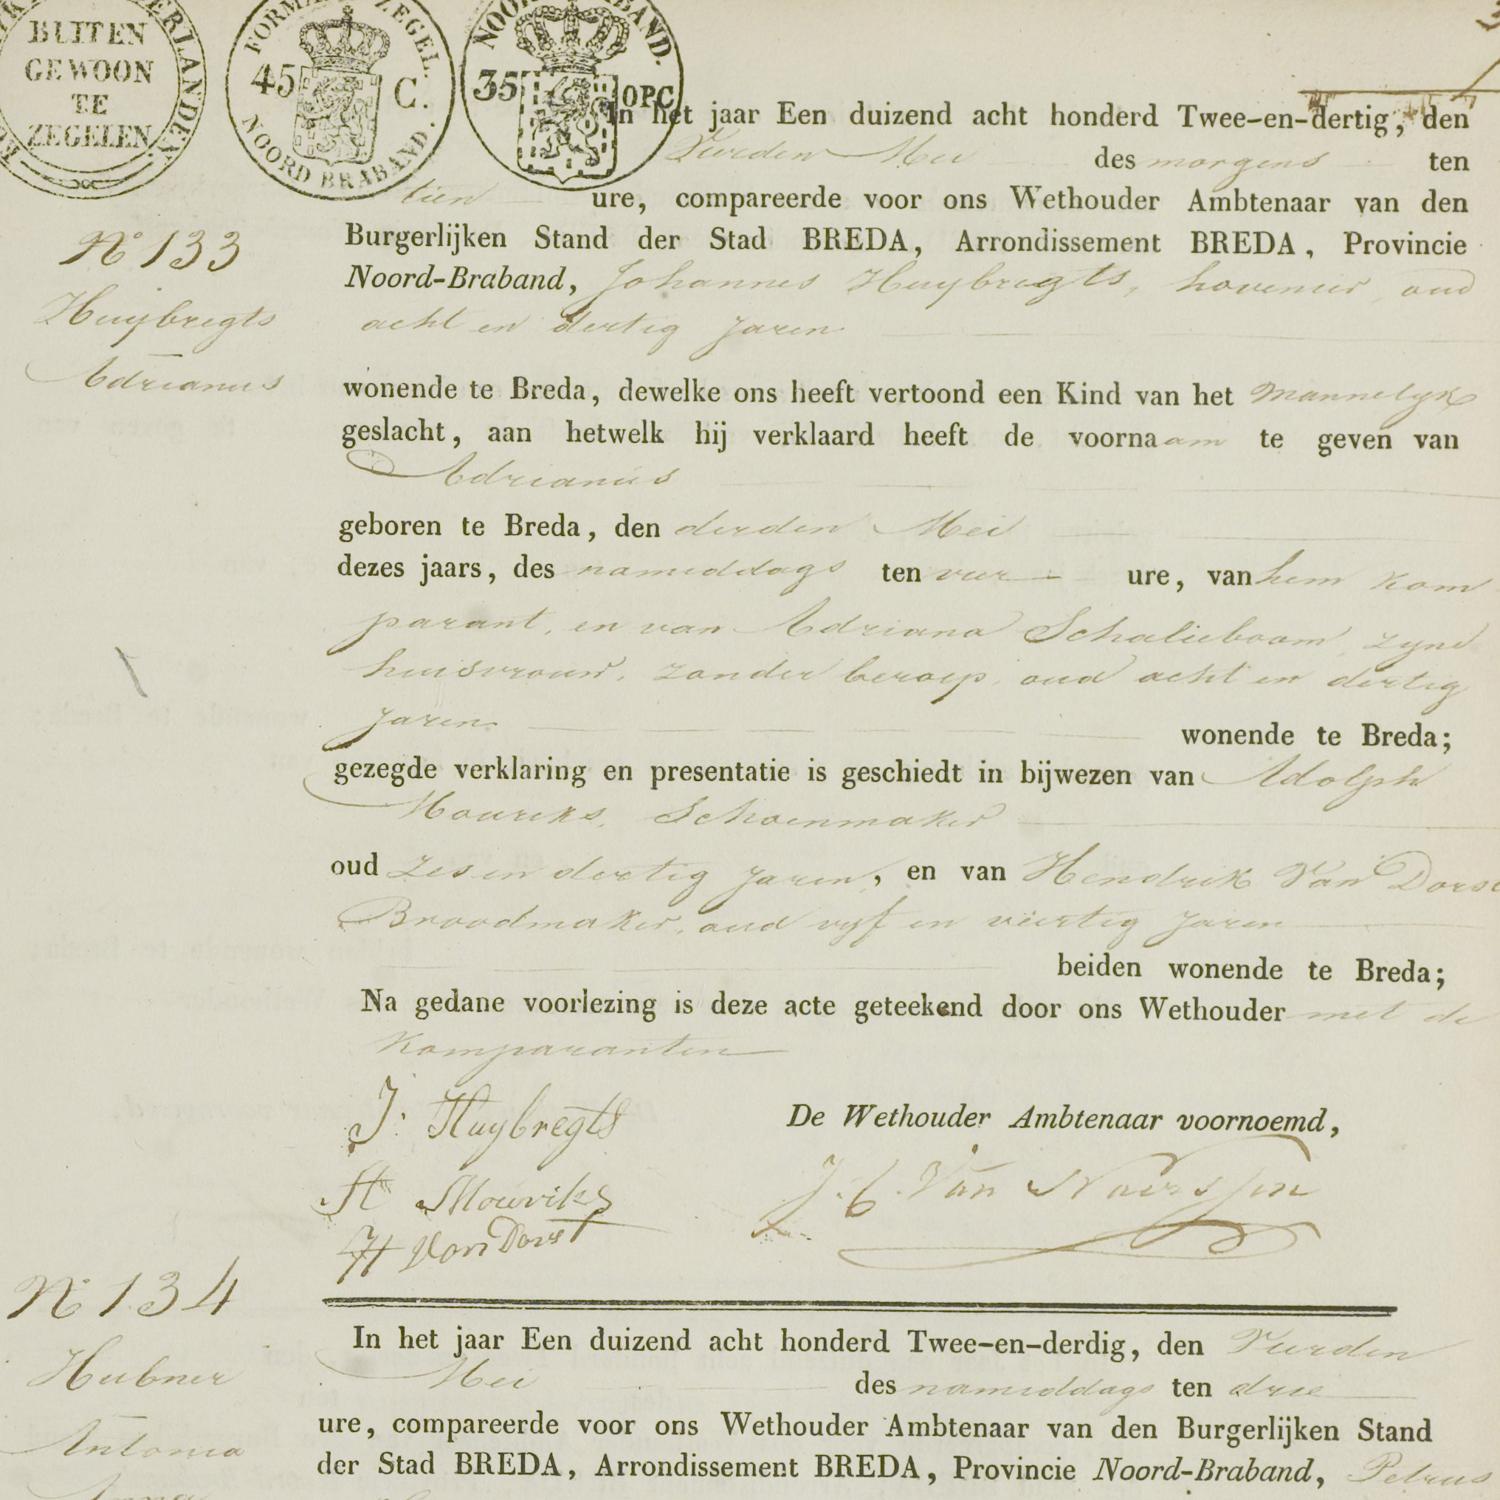 BUITEN
GEWOON
TE
ZEGELEN
FORMAAT ZEGEL.
45 C.
NOORD BRABAND.
NOORD BRABAND.
35 OPC
In het jaar Een duizend acht honderd Twee-en-dertig, den
Vierden Mei des morgens ten
tien ure, compareerde voor ons Wethouder Ambtenaar van den
Burgerlijken Stand der Stad BREDA, Arrondissement BREDA, Provincie
Noord-Braband, Johannes Huybregts, hovenier, oud
acht en dertig Jaren
wonende te Breda, dewelke ons heeft vertoond een Kind van het mannelyk
geslacht, aan hetwelk hij verklaard heeft de voornaam te geven van
Adrianus
geboren te Breda, den derden Mei
dezes jaars, des namiddags ten vier ure, van hem kom
parant, en van Adriana Schalieboom, zyne
huisvrouw, zonder beroep, oud acht en dertig
Jaren wonende te Breda;
gezegde verklaring en presentatie is geschiedt in bijwezen van Adolph
Mouriks, Schoenmaker
oud zes en dertig Jaren, en van Hendrik Van Dorst
Broodmaker, oud vyf en viertig Jaren
beiden wonende te Breda;
Na gedane voorlezing is deze acte geteekend door ons Wethouder met de
komparanten
J. Huybregts
A Mouriks
H Van Dorst
De Wethouder Ambtenaar voornoemd,
J. C. Van Naerssen
No 133
Huybregts
Adrianus
No 134
Hubner
Antonia
Anna
In het jaar Een duizend acht honderd Twee-en-derdig, den Vierden
Mei des namiddags ten drie
ure, compareerde voor ons Wethouder Ambtenaar van den Burgerlijken Stand
der Stad BREDA, Arrondissement BREDA, Provincie Noord-Braband, Petrus